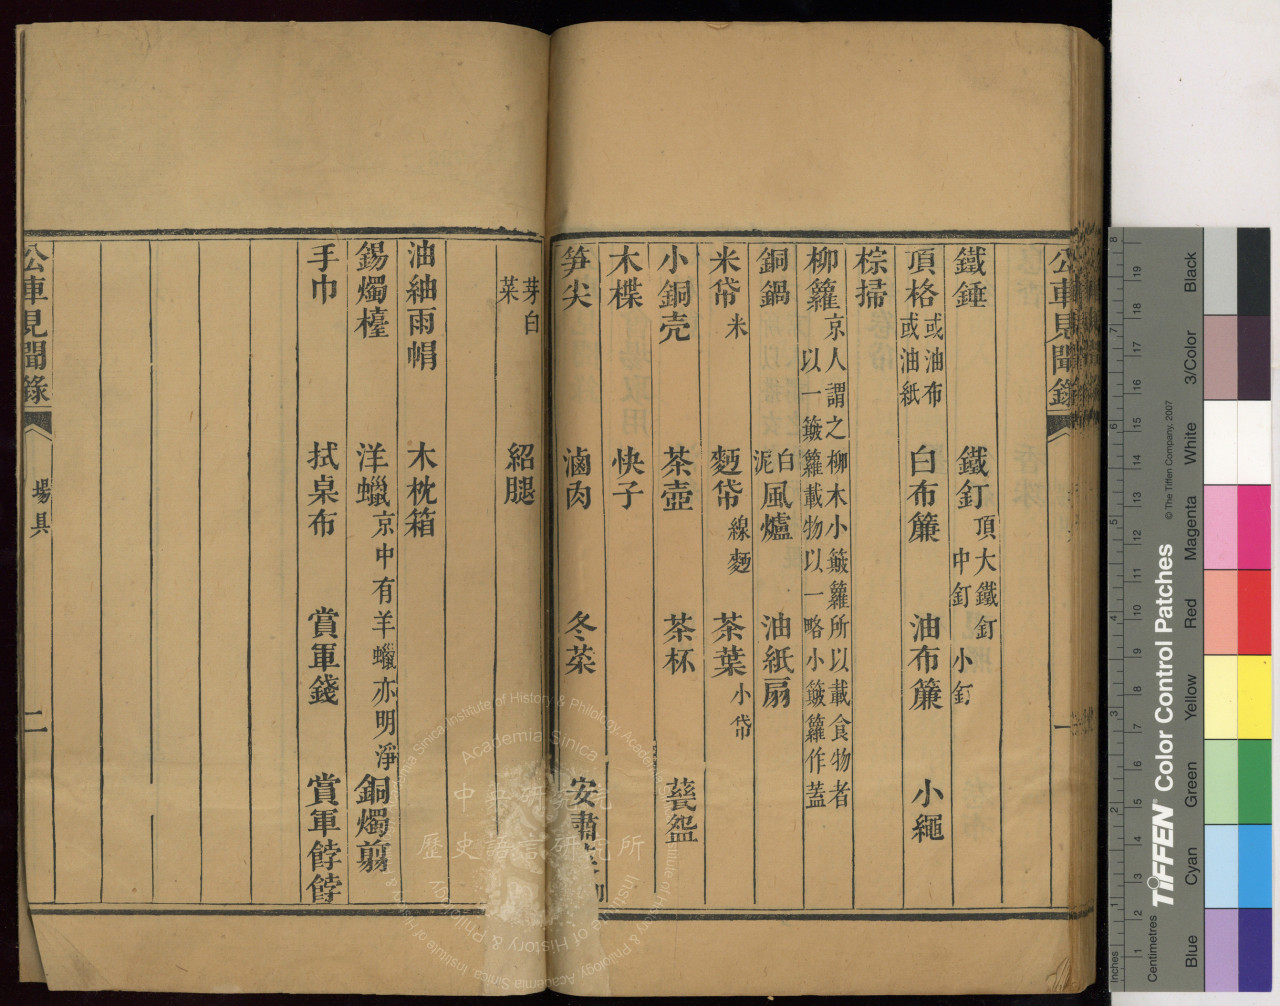 公車見聞錄
一
鐵錘 鐵釘 頂大鐵釘 中釘 小釘
頂格 或油布 或油紙 白布簾 油布簾 小繩
棕掃
柳籮 京人謂之柳木小簸籮所以載食物者 以一簸籮載物以一略小簸籮作蓋
銅鍋 白泥風爐 油紙扇
米帒 米 麪帒 線麪 茶葉 小帒
小銅壳 茶壺 茶杯
木楪 快子
笋尖 滷肉 冬菜 安肅
芽白菜 紹腿
油紬雨帽 木枕箱
錫燭檯 洋蠟 京中有羊蠟亦明淨 銅燭剪
手巾 拭桌布 賞軍錢 賞軍餑餑
公車見聞錄
場具
二
中央研究院
歷史語言研究所
Academia Sinica
Institute of History & Philology, Academia Sinica
TIFFEN® Color Control Patches
© The Tiffen Company, 2007
Inches
Centimetres
Blue
Cyan
Green
Yellow
Red
Magenta
White
3/Color
Black